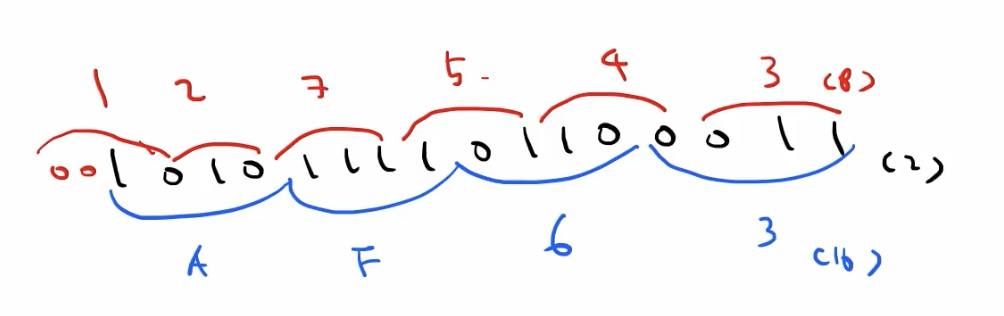 1 2 7 5 4 3 (8)
001010111101100011 (2)
A F 6 3 (16)